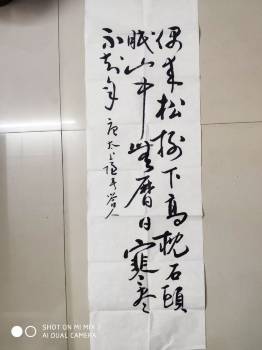 偶来松樹下高枕石頭
眠山中無曆日寒盡
不知年
唐太上隐者答人
SHOT ON MI MIX 2S
AI DUAL CAMERA